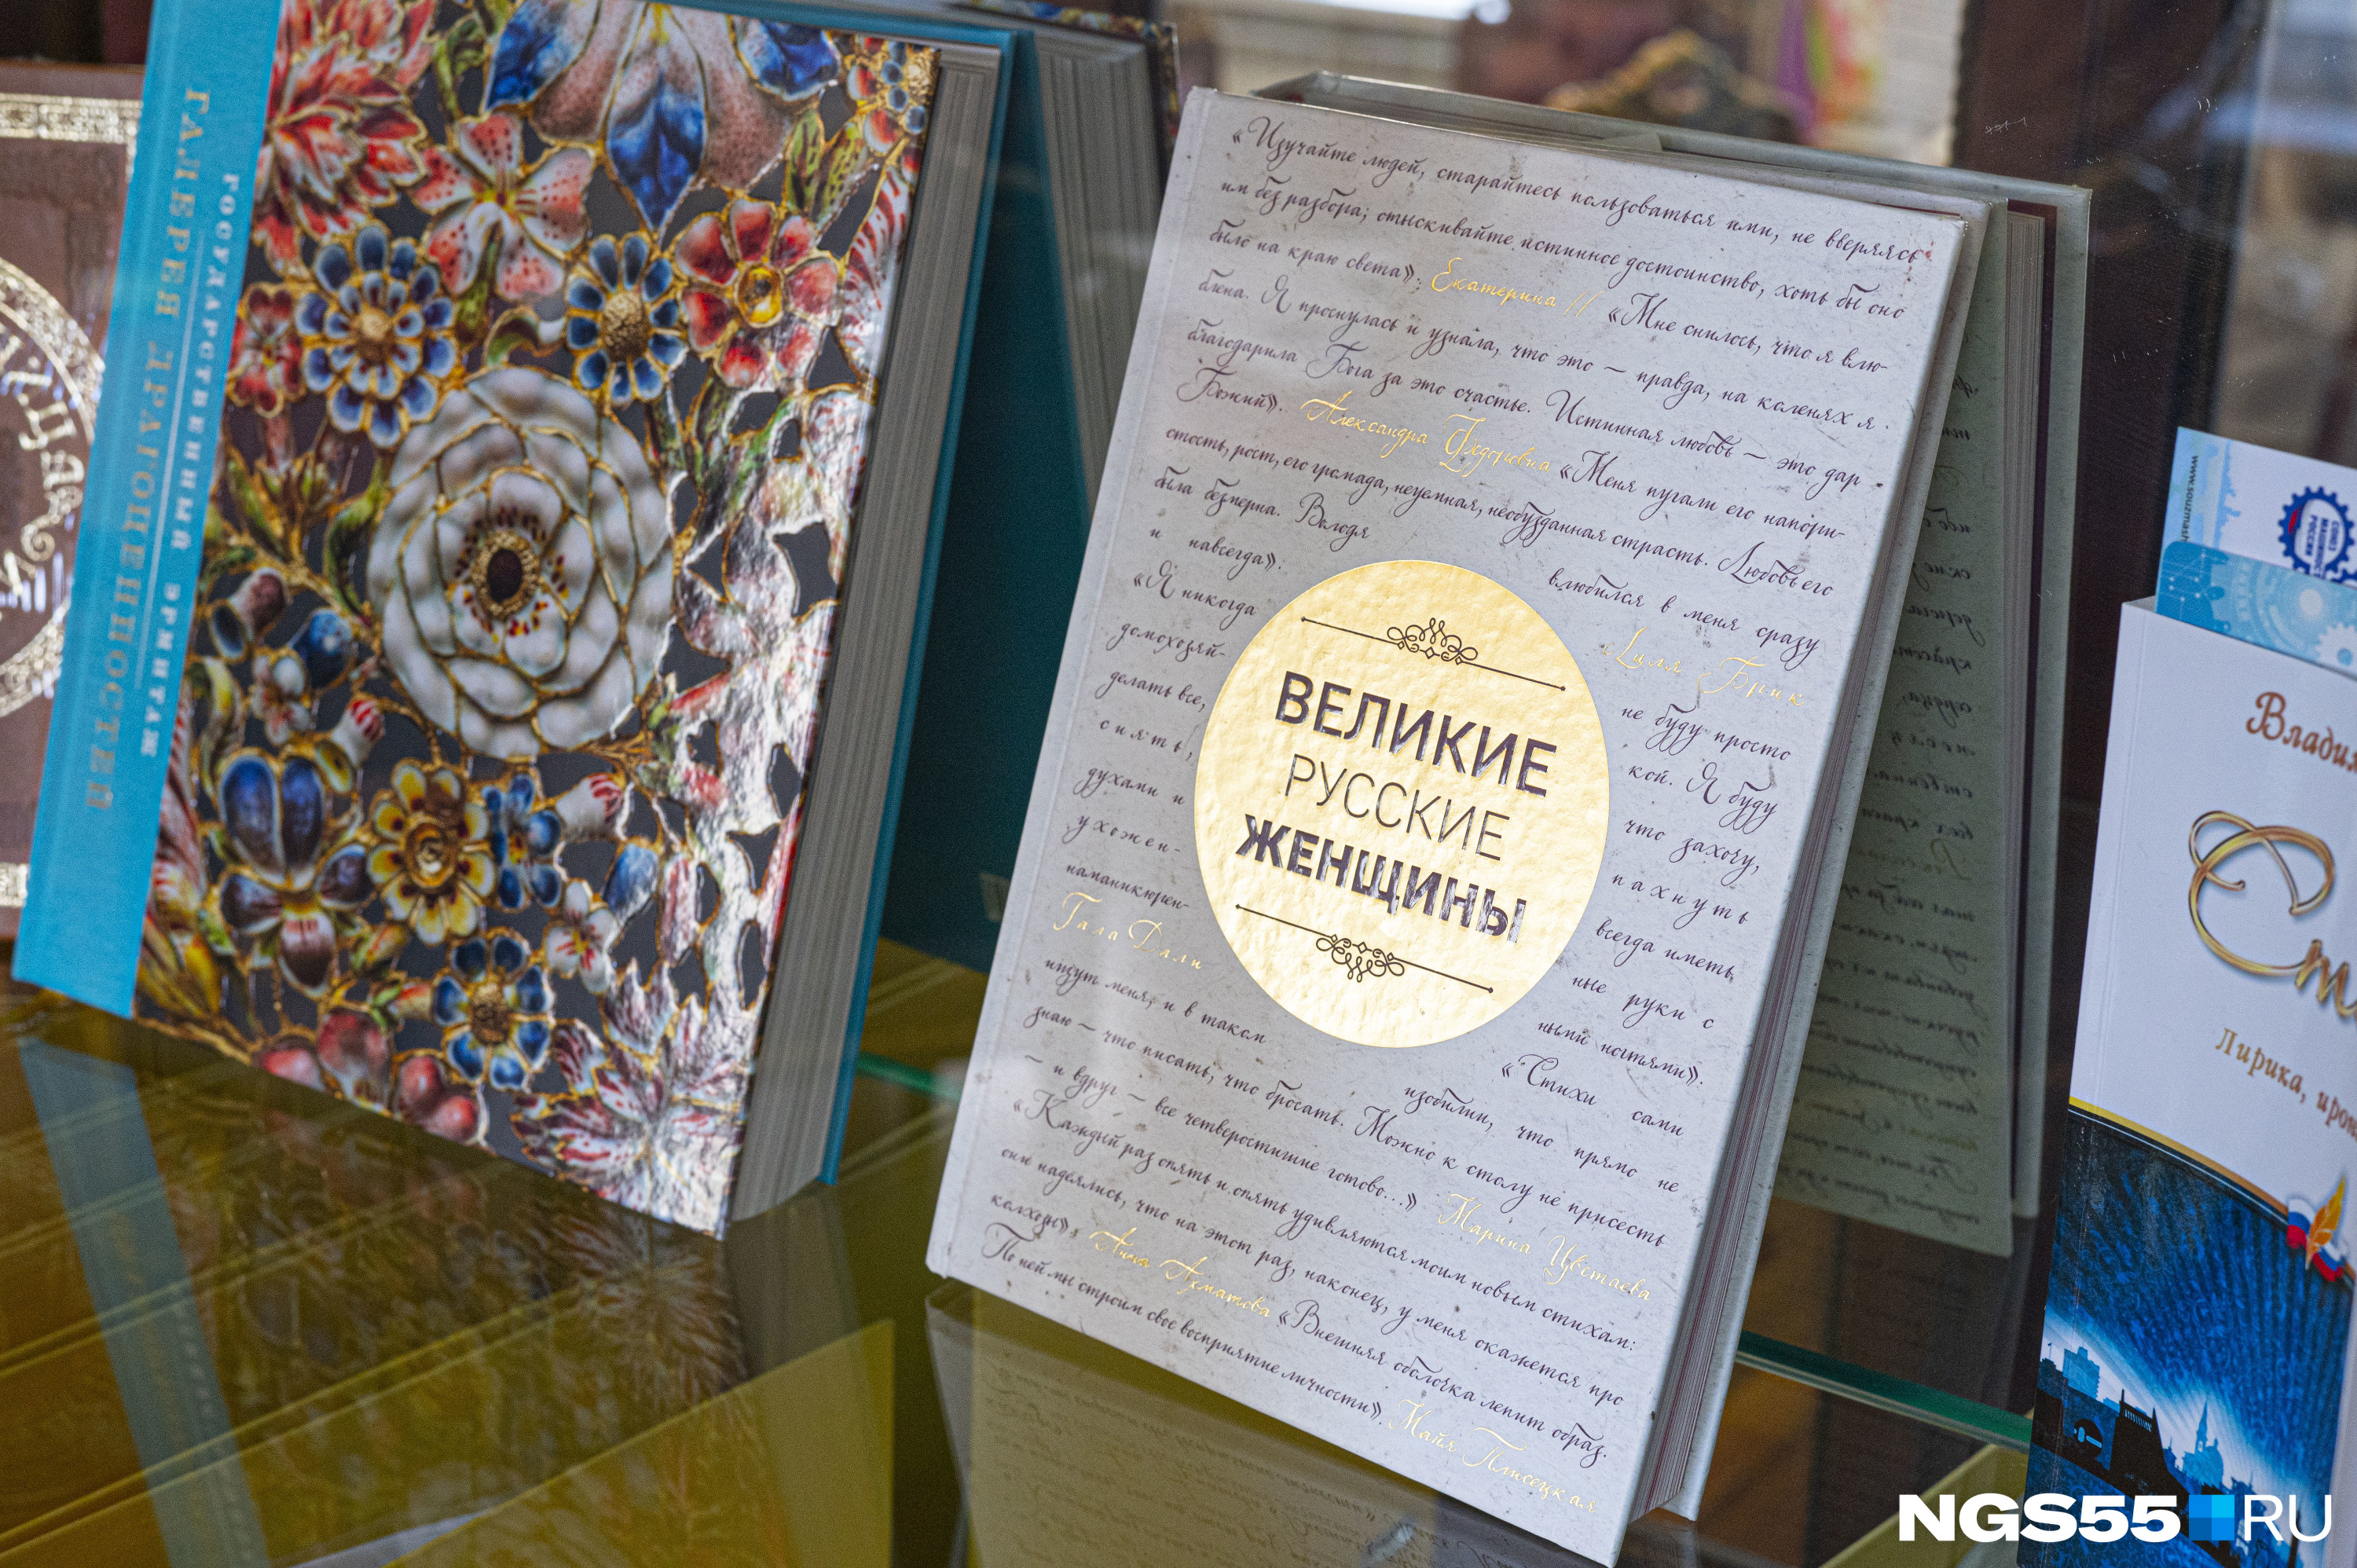 ГАЛЕРЕЯ ДРАГОЦЕННОСТЕЙ
ГОСУДАРСТВЕННЫЙ ЭРМИТАЖ
«Изучайте людей, старайтесь пользоваться ими, не вверяясь
им без разбора; отыскивайте истинное достоинство, хоть бы оно
было на краю света». Екатерина II «Мне снилось, что я влю-
блена. Я проснулась и узнала, что это — правда, на коленях я
благодарила Бога за это счастье. Истинная любовь — это дар
Божий». Александра Федоровна «Меня пугали его напори-
стость, рост, его громада, неуемная, необузданная страсть. Любовь его
была безмерна. Володя влюбился в меня сразу
и навсегда». Лиля Брик
«Я никогда не буду просто
домохозяй- кой. Я буду
делать все, что захочу,
сиять, пахнуть
духами и всегда иметь
ухожен- ные руки с
наманикюрен- ными ногтями».
Гала Дали «Стихи сами
ищут меня, и в таком изобилии, что прямо не
знаю — что писать, что бросать. Можно к столу не присесть
— и вдруг — все четверостишие готово...» Марина Цветаева
«Каждый раз опять и опять удивляются моим новым стихам:
они надеялись, что на этот раз, наконец, у меня окажется про
колхозы». Анна Ахматова «Внешняя оболочка лепит образ.
По ней мы строим свое восприятие личности». Майя Плисецкая
ВЕЛИКИЕ
РУССКИЕ
ЖЕНЩИНЫ
СОЮЗ
РОССИИ
Лирика,
NGS55.RU